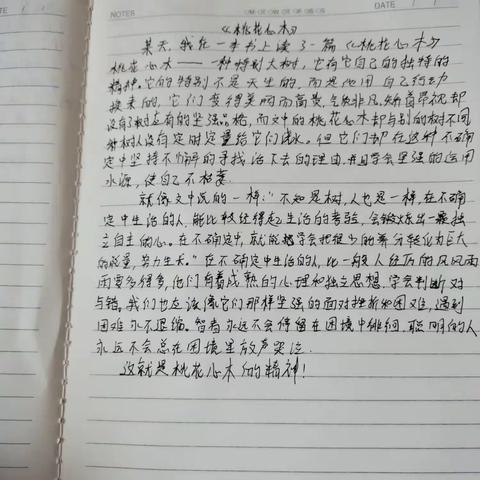 NOTES
DATE / /
《桃花心木》
某天,我在一本书上读了一篇《桃花心木》
桃花心木——一种特别大树,它有它自己的独特的
精神。它的特别不是天生的,而是他用自己行动
换来的,它们变得美丽而高贵,气质非凡,却
没有了树应有的坚强品格,而文中的桃花心木却与别的树不同
种树人没有定时定量给它们浇水。但它们却在这种不确
定中坚持不懈的寻找活下去的理由,并且学会坚强的运用
水源,使自己不枯萎。
就像文中说的一样:"不知是树,人也是一样,在不确
定中生活的人,能比较经得起生活的考验,会锻炼出一颗独
立自主的心。在不确定中,就能学会把很少的养分转化为巨大
的能量,努力生长。"在不确定中生活的人,比一般人经历的风风雨
雨要多得多,他们有着成熟的心理和独立思想,学会判断对
与错。我们也应该像它们那样坚强的面对挫折和困难,遇到
困难永不退缩。智者永远不会停留在困境中徘徊,聪明的人
永远不会总在困境里放声哭泣.
这就是桃花心木的精神!